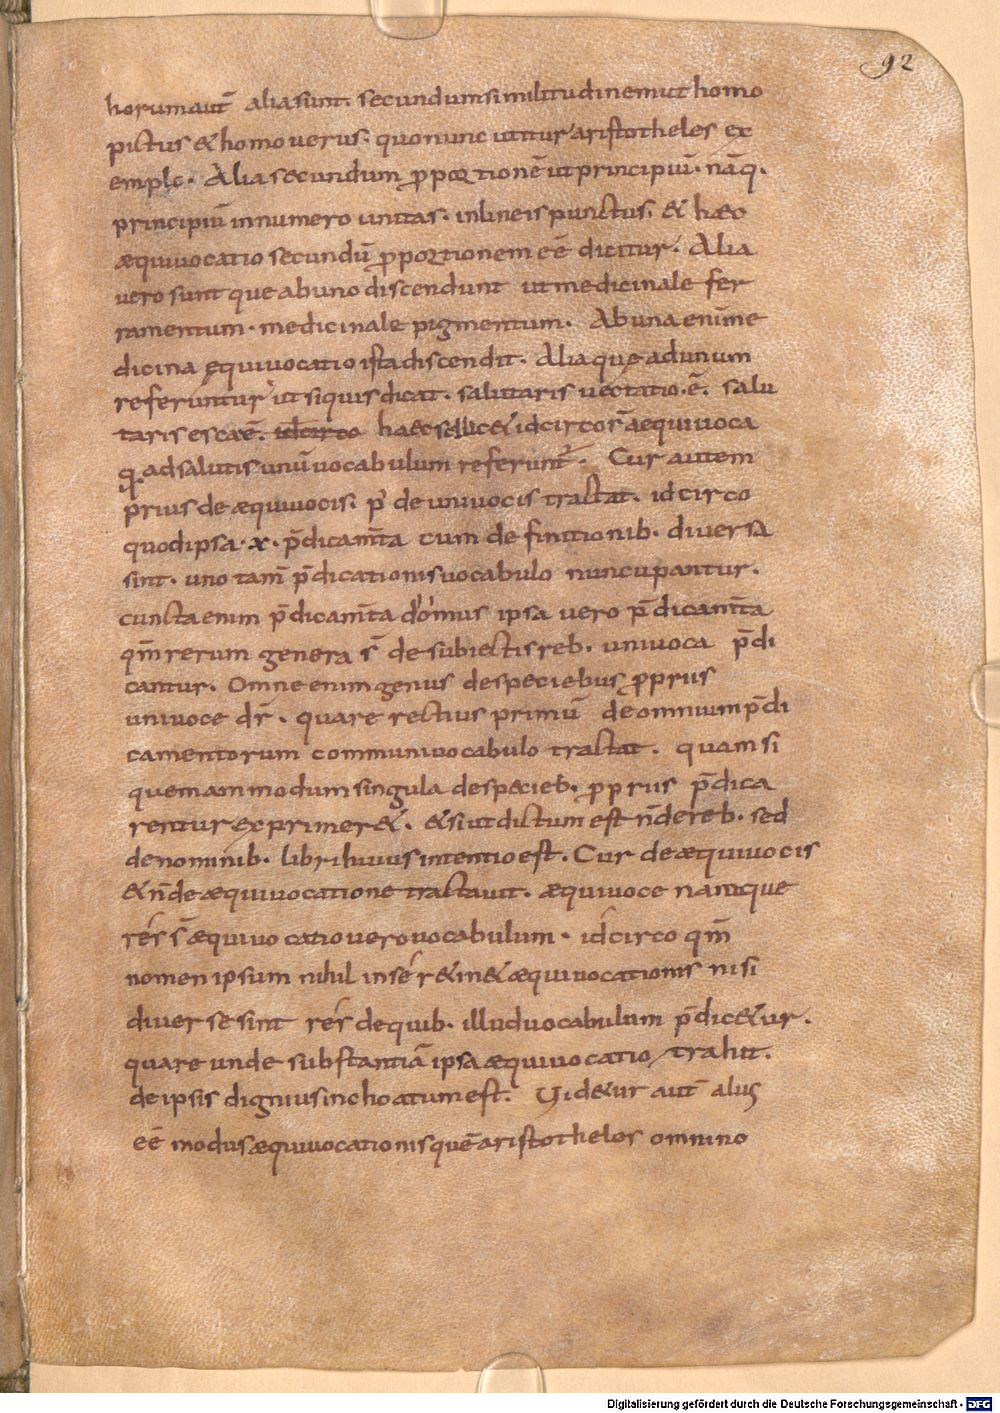 92
horum aut̄ alia sunt. secundum similitudinem ut homo
pictus & homo uerus. quo nunc utitur aristotheles ex
emplo. Alia secundum ꝓportionē ut principiū. nāq.
principiū in numero unitas. in lineis punctus. & haec
æquiuocatio secundū ꝓportionem eē dicitur. Alia
uero sunt que ab uno discendunt ut medicinale fer
ramentum. medicinale pigmentum. Ab una enim me
dicina ęquiuocatio ista discendit. Alia quę ad unum
referuntur ut siquis dicat. salutaris uectatio .ē. salu
taris esca ē. idcirco haec scilic& idcirco r̄ aequiuoca
q̄. ad salutis unū uocabulum referunt̄. Cur autem
prius de æquiuocis. p' de uniuocis tractat. idcirco
quod ipsa .x. p̄dicam̄ta cum definitionib. diuersa
sint. uno tam̄ p̄dicationis uocabulo nuncupantur.
cuncta enim p̄dicam̄ta d'omus ipsa uero p̄dicam̄ta
qm̄ rerum genera s̄ de subiectis reb. uniuoca p̄di
cantur. Omne enim genus de speciebus ꝓpriis
uniuoce dr̄. quare rectius primū de omnium p̄di
camentorum communi uocabulo tractat. quam si
quemammodum singula de specieb. ꝓpriis p̄dica
rentur exprimer&. & si ut dictum est n̄ de reb. sed
de nominib. libri huius intentio est. Cur de æquiuocis
& n̄ de æquiuocatione tractauit. æquiuoce namque
res s̄ æquiuocatio uero uocabulum. idcirco qm̄
nomen ipsum nihil in se r&in& æquiuocationis nisi
diuerse sint res de quib. illud uocabulum p̄dic&ur.
quare unde substantiā ipsa æquiuocatio trahit.
de ipsis dignius inchoatum est. Uid&ur aut̄ alius
eē modus æquiuocationis quē aristotheles omnino
Digitalisierung gefördert durch die Deutsche Forschungsgemeinschaft - DFG